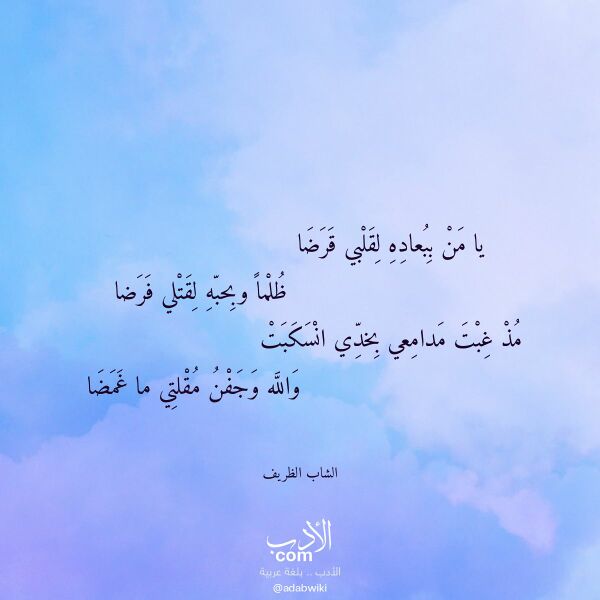 يا مَنْ بِبُعادِهِ لِقَلْبي قَرَضَا
ظُلْماً وبِحبّهِ لِقَتْلي فَرَضا
مُذْ غِبْتَ مَدامِعي بِخدِّي انْسَكَبَتْ
وَاللَّه وَجَفْنُ مُقْلتِي ما غَمَضَا
الشاب الظريف
الأدب
com
الأدب .. بلغة عربية
@adabwiki